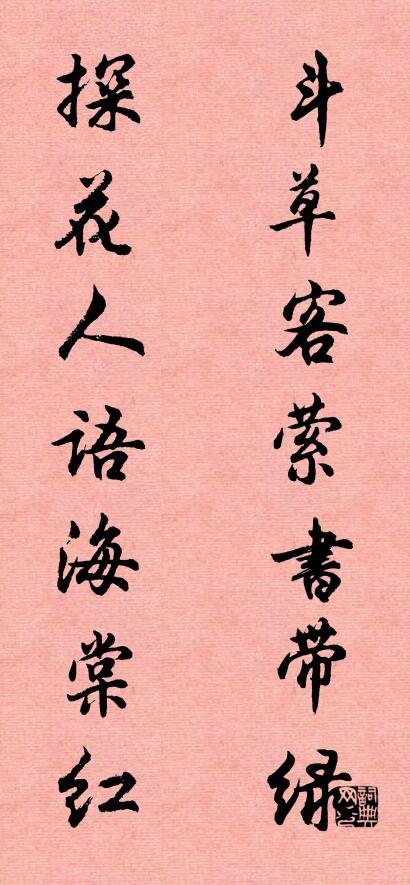 斗草客萦书带绿
探花人语海棠红
詞典网